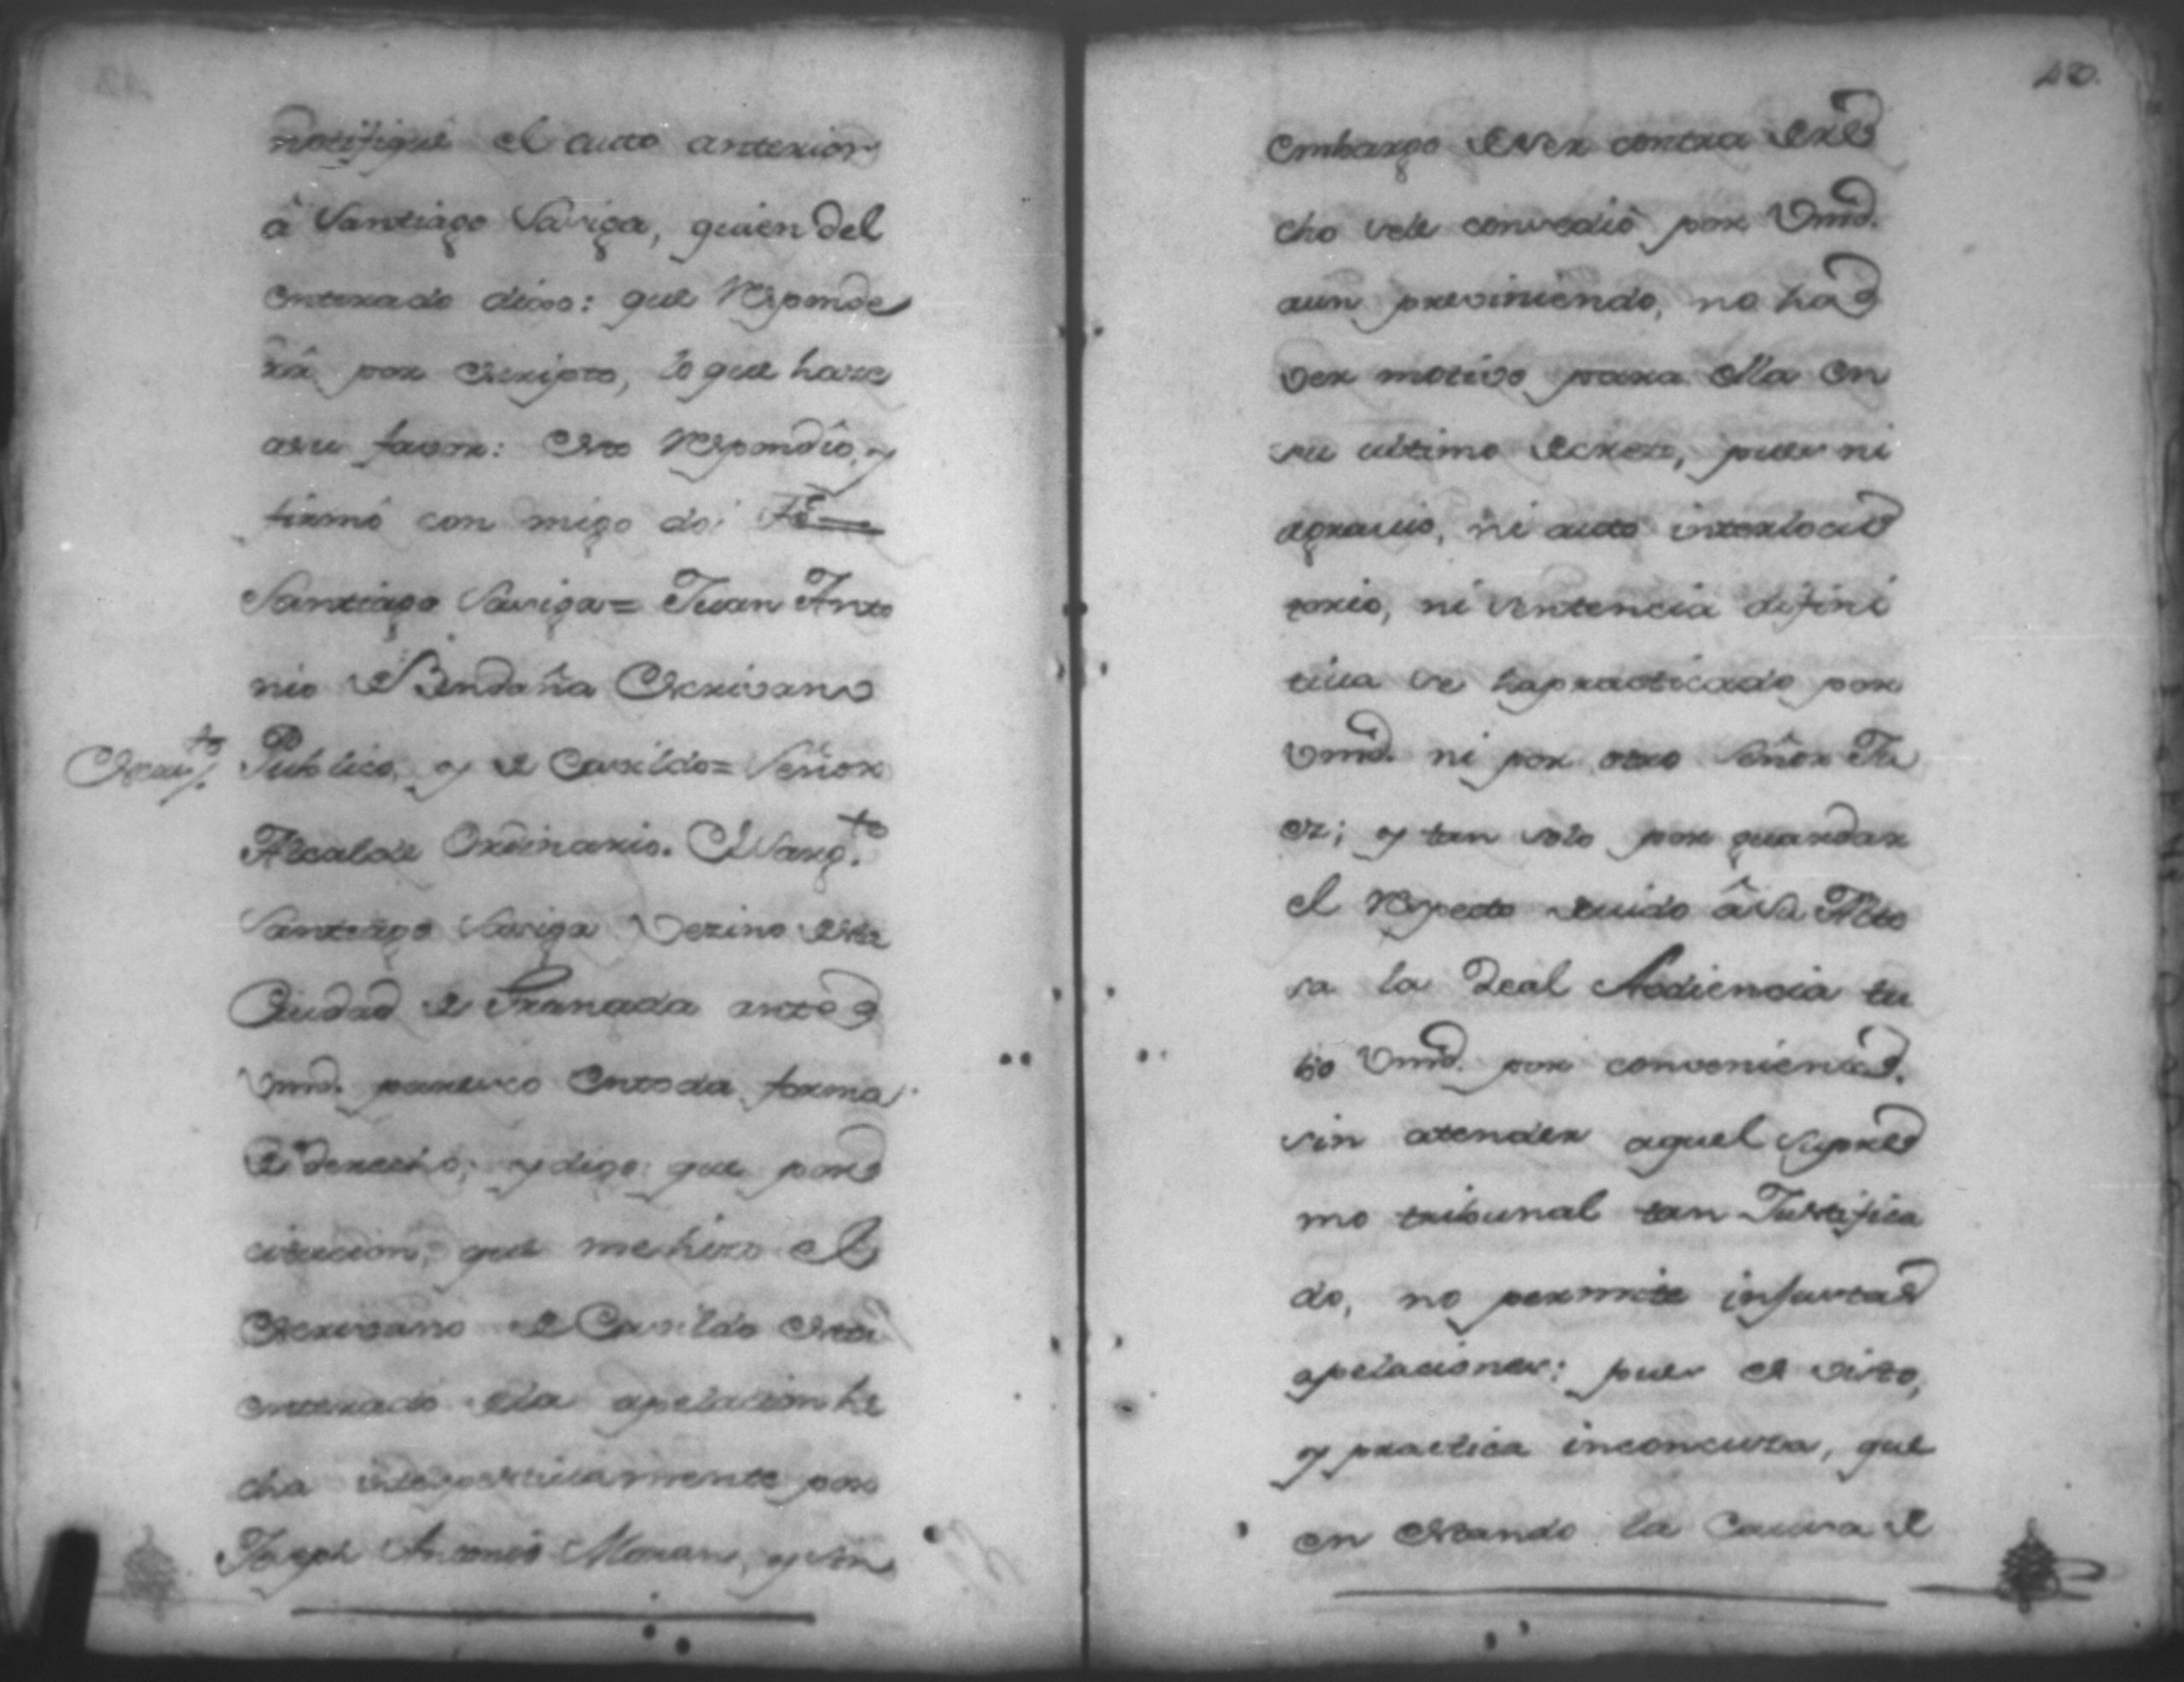 notifiqué el auto anterior
â Santiago Saviga, quien del
enterado dixo: que Responde
râ por escripto, lo que haze
asu favor: Esto Respondiô, y
firmô con migo doi fê
Santiago Saviga = Juan Anto
nio de Bendaña Escrivano
Publico, y de Cavildo = Señor
Escrip.to
Alcalde Ordinario. El Sarg.to
Santiago Saviga Vezino desta
Ciudad de Granada ante
Vmd. paresco entoda forma
de derecho, y digo: que por
citacion, que mehizo el
Escrivano de Cavildo esto
enterado dela apelacion he
cha intespectivamente por
Joseph Antonio Moran, y sin
480.
embargo deser contra dere
cho sele consediô por Vmd.
aun previniendo, no ha
ver motivo para ella en
su ultimo decreto, pues ni
agravio, ni auto interlocu
torio, ni sentencia difini
tiva se hapracticado por
Vmd. ni por otro Señor Ju
ez; y tan solo por guardar
el Respecto devido â Su Alte
sa la Real Audiencia tu
bo Vmd. por conveniente.
sin atender aquel supre
mo tribunal tan Justifica
do, no permite injustas
apelaciones: pues es visto,
y practica inconcusa, que
en estando la Causa de